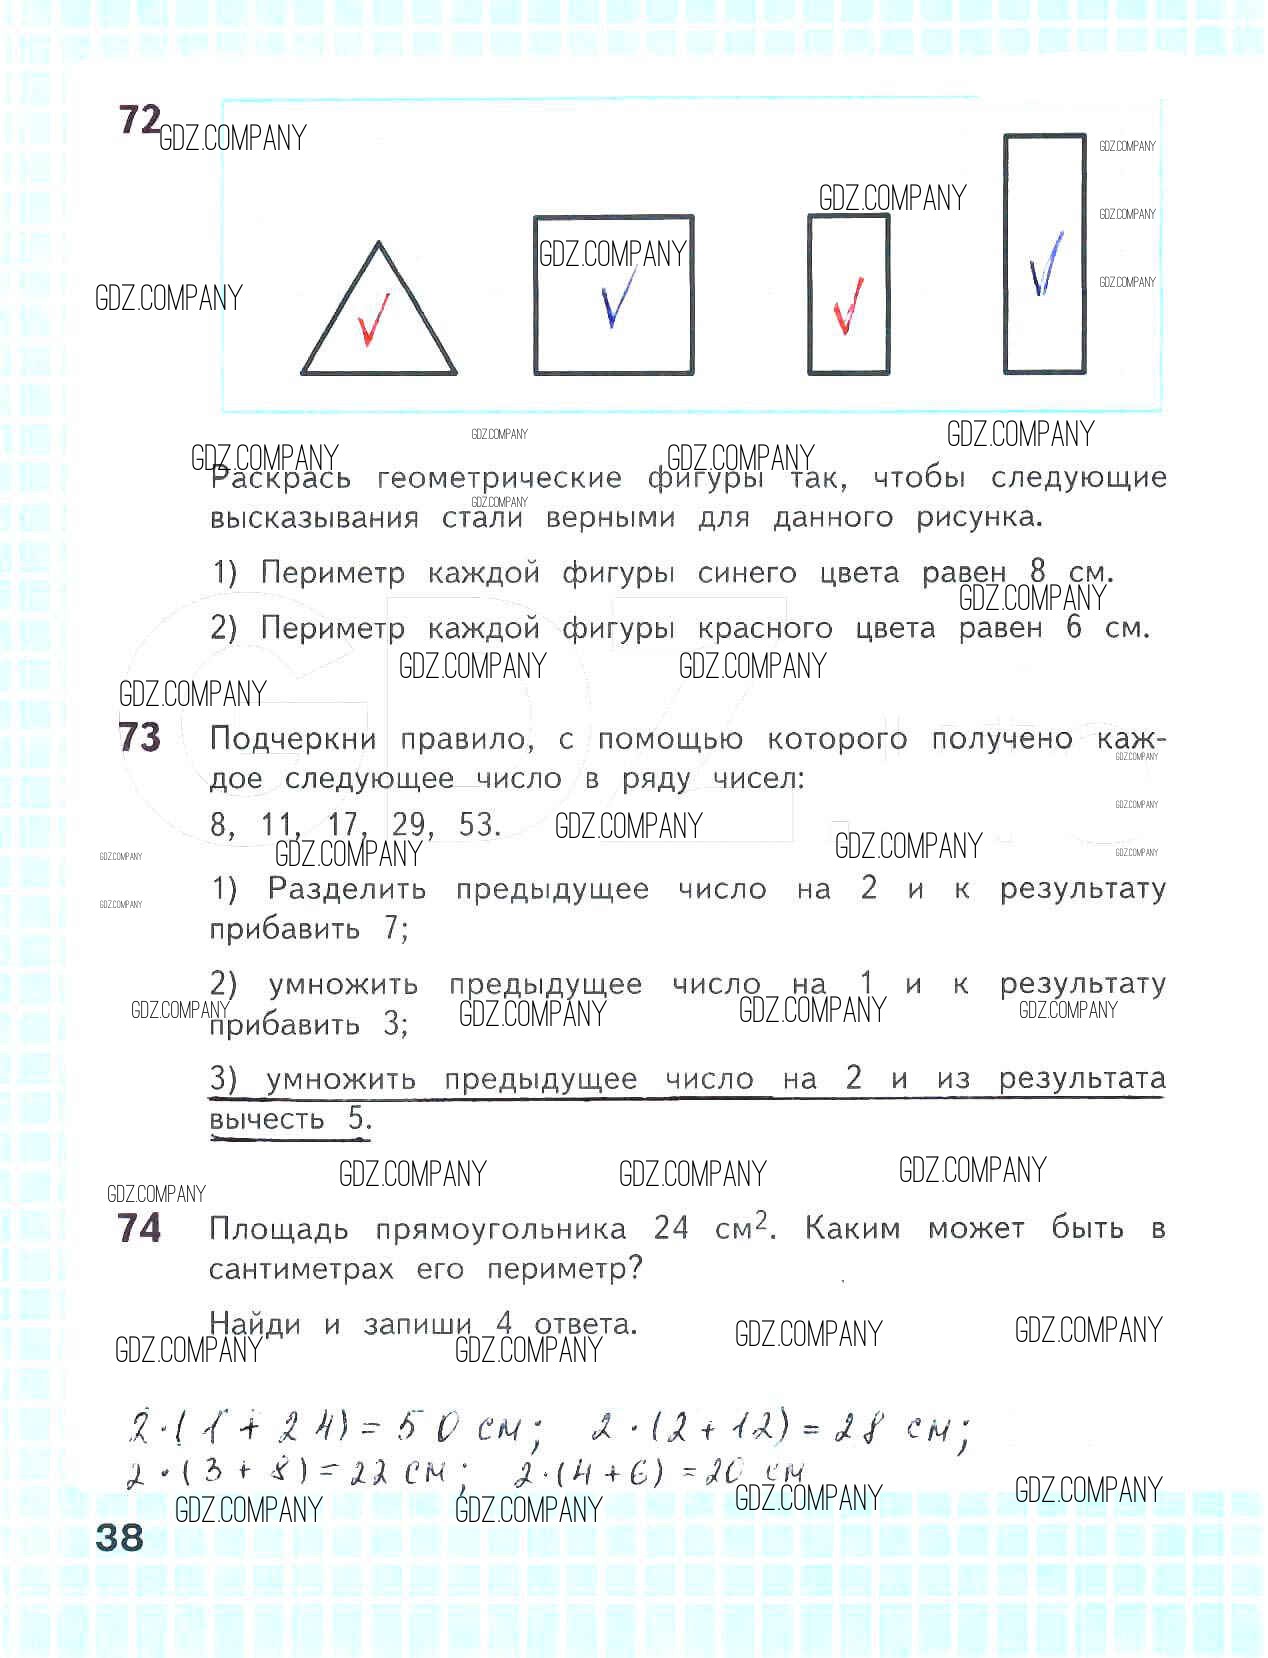 72
GDZ.COMPANY
GDZ.COMPANY
GDZ.COMPANY
GDZ.COMPANY
GDZ.COMPANY
GDZ.COMPANY
GDZ.COMPANY
GDZ.COMPANY
GDZ.COMPANY
GDZ.COMPANY
GDZ.COMPANY
Раскрась геометрические фигуры так, чтобы следующие
GDZ.COMPANY
высказывания стали верными для данного рисунка.
1) Периметр каждой фигуры синего цвета равен 8 см.
GDZ.COMPANY
2) Периметр каждой фигуры красного цвета равен 6 см.
GDZ.COMPANY GDZ.COMPANY
GDZ.COMPANY
73 Подчеркни правило, с помощью которого получено каж-
GDZ.COMPANY
дое следующее число в ряду чисел:
GDZ.COMPANY
8, 11, 17, 29, 53. GDZ.COMPANY
GDZ.COMPANY GDZ.COMPANY GDZ.COMPANY
GDZ.COMPANY
1) Разделить предыдущее число на 2 и к результату
GDZ.COMPANY
прибавить 7;
2) умножить предыдущее число на 1 и к результату
GDZ.COMPANY GDZ.COMPANY GDZ.COMPANY GDZ.COMPANY
прибавить 3;
3) умножить предыдущее число на 2 и из результата
вычесть 5.
GDZ.COMPANY GDZ.COMPANY GDZ.COMPANY
GDZ.COMPANY
74 Площадь прямоугольника 24 см². Каким может быть в
сантиметрах его периметр?
Найди и запиши 4 ответа.
GDZ.COMPANY GDZ.COMPANY GDZ.COMPANY GDZ.COMPANY
2·(1+24)=50 см; 2·(2+12)=28 см;
2·(3+8)=22 см; 2·(4+6)=20 см
GDZ.COMPANY GDZ.COMPANY GDZ.COMPANY GDZ.COMPANY
38